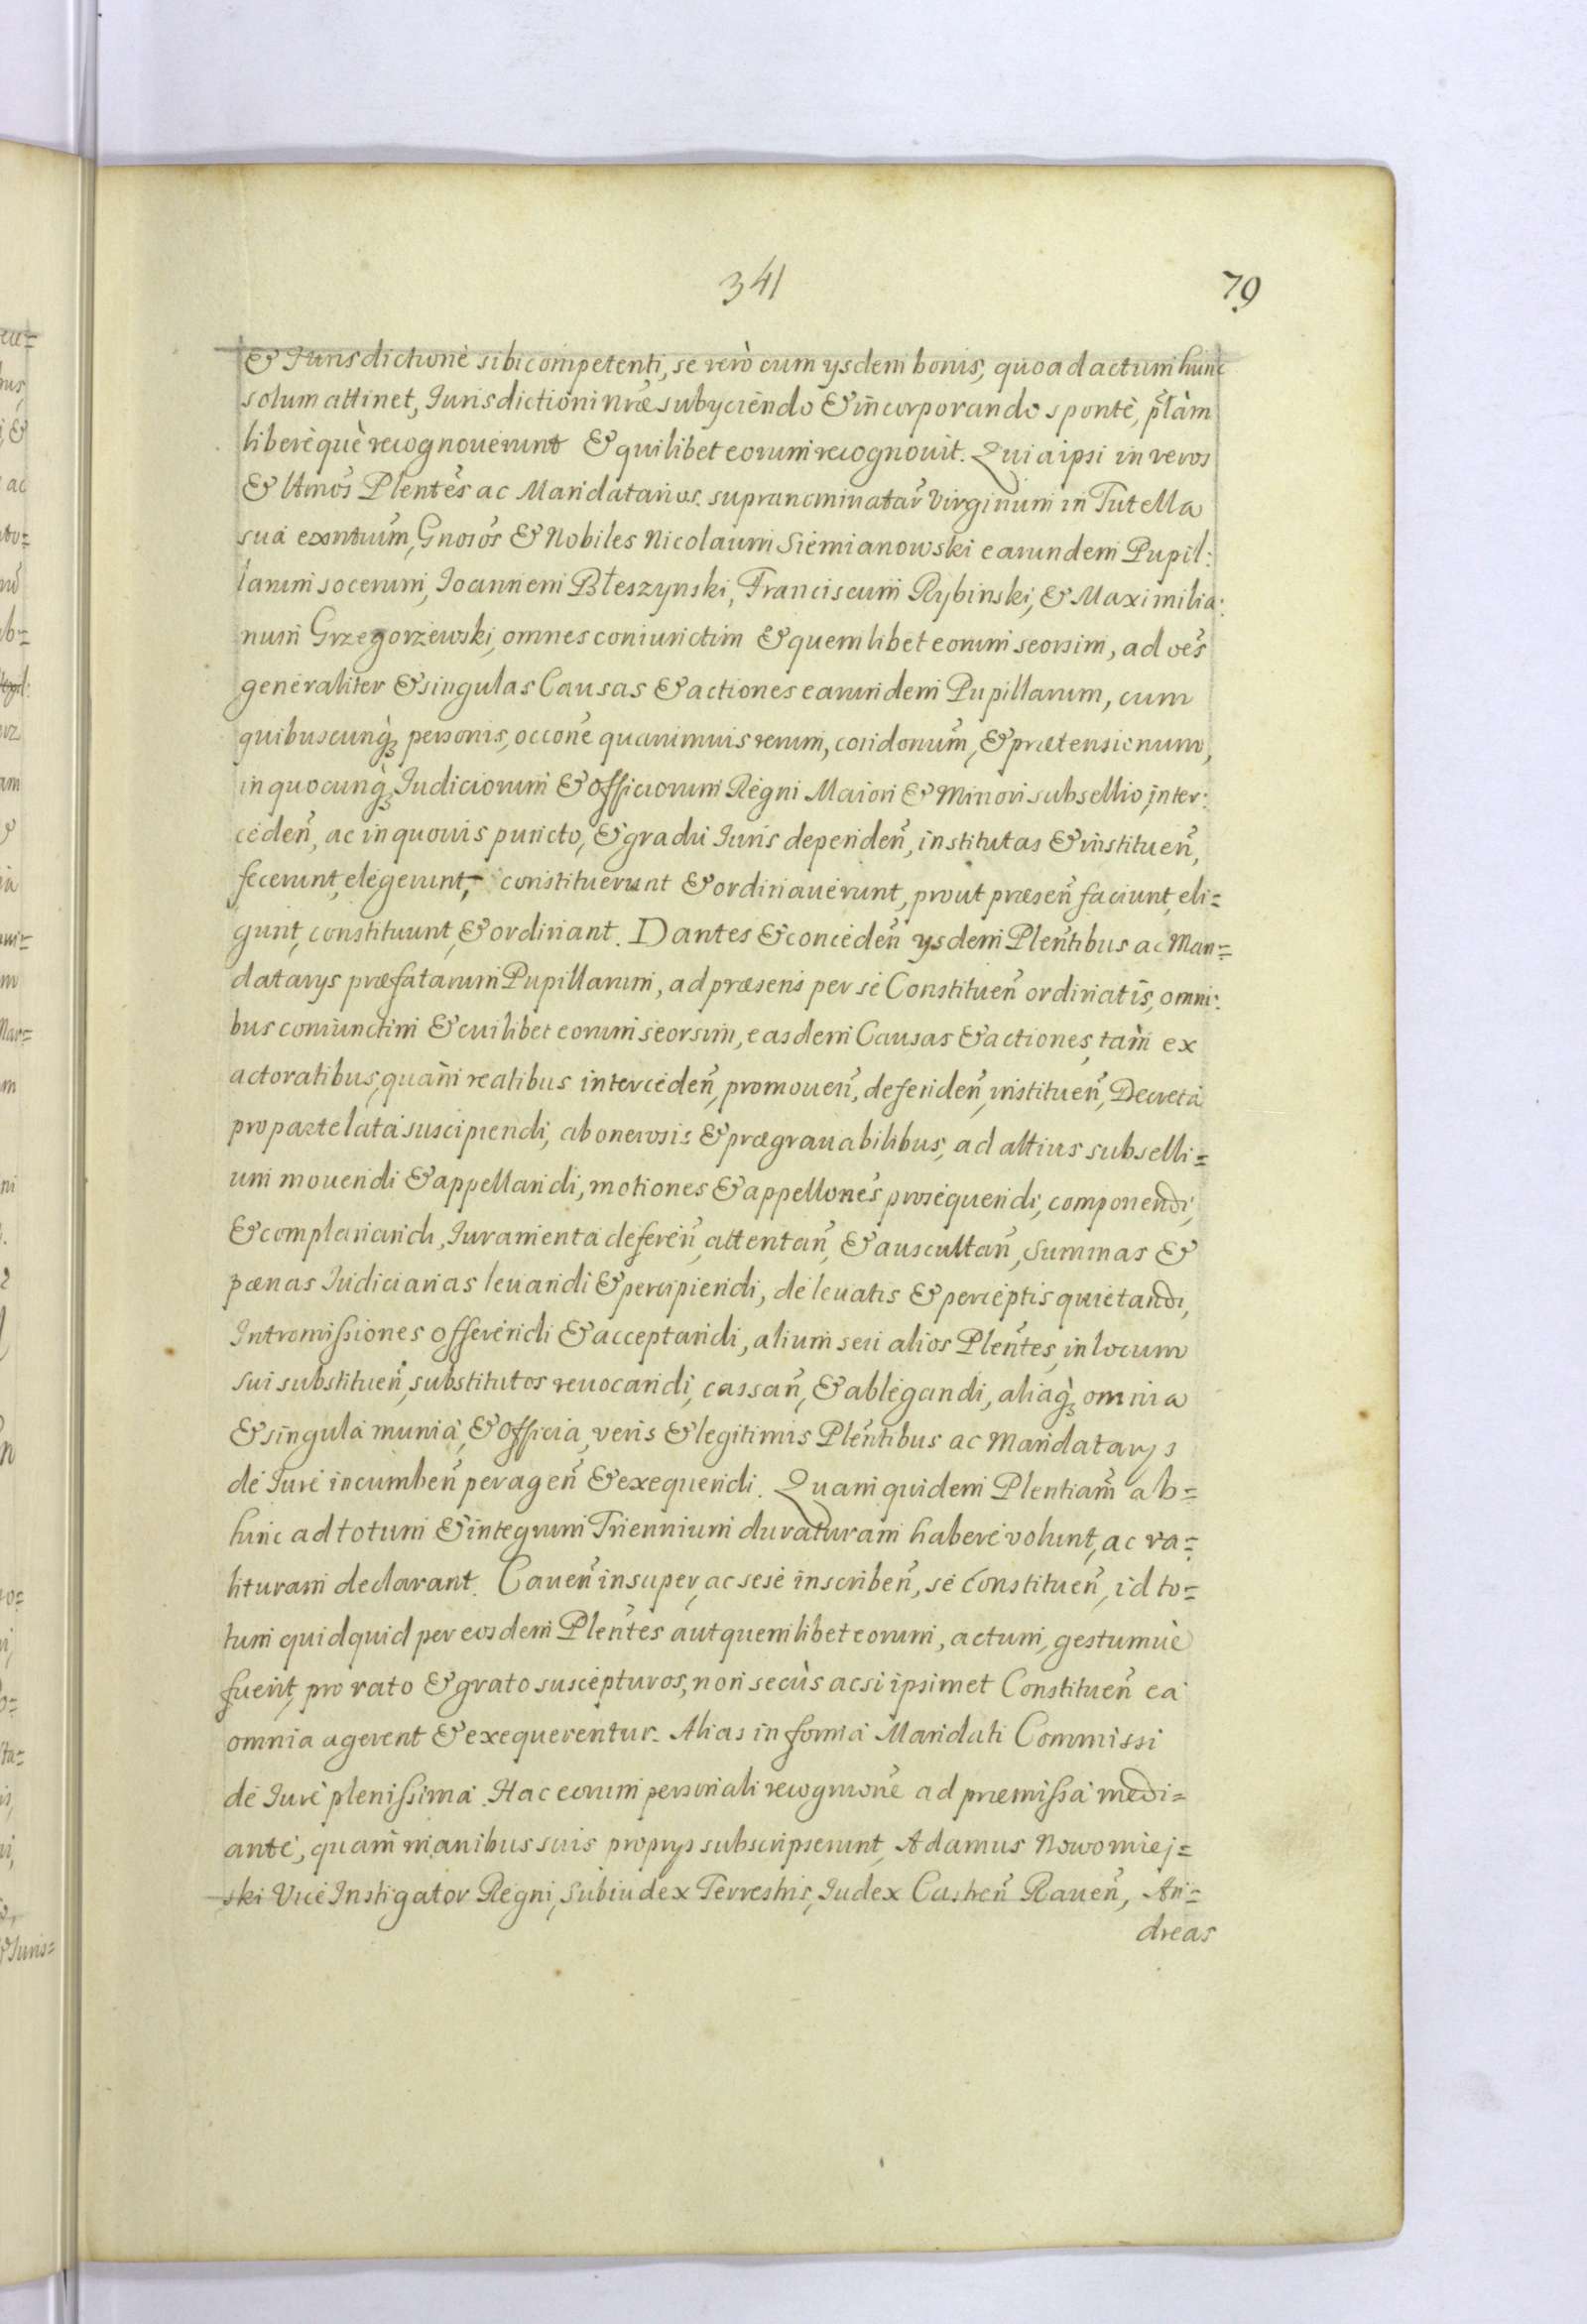 341
79
& Jurisdictione sibi competenti, se verò cum ysdem bonis, quoad actum hunc
solum attinet, Jurisdictioni nr̃æ subyciendo & incorporando spontè, p̃làm
liberèquè recognouerunt & quilibet eorum recognouit. Quia ipsi in veros
& ltĩmos Plentẽs ac Mandatarios supranominatar̃ Virginum in Tutella
sua exñtium, Gnosos̃ & Nobiles Nicolaum Siemianowski earundem Pupil:
larum socerum, Joannem Błeszynski, Franciscum Rybinski, & Maximilia:
num Grzegorzewski, omnes coniunctim & quemlibet eorum seorsim, ad oẽs
generaliter & singulas Causas & actiones earundem Pupillarum, cum
quibuscunq̀ꝫ personis, occone᷈ quarumuis rerum, condonum᷈, & prætensionum,
in quocunq̀ꝫ Judiciorum & Officiorum Regni Maiori & Minori subsellio, inter:
ceden᷈, ac in quouis puncto, & gradu Juris dependen᷈, institutas & instituen᷈,
fecerunt, elegerunt, constituerunt & ordinauerunt, prout præsen᷈ faciunt, eli=
gunt, constituunt, & ordinant. Dantes & conceden᷈ ysdem Plen᷈tibus ac Man=
datarys præfatarum Pupillarum, ad præsens per se Constituen᷈ ordinatis, omni:
bus coniunctim & cuilibet eorum seorsim, easdem Causas & actiones, tàm ex
actoratibus, quàm reatibus interceden᷈, promouen᷈, defenden᷈, instituen᷈, Decreta
pro parte lata suscipiendi, ab onerosis & prægrauabilibus, ad altius subselli=
um mouendi & appellandi, motiones & appellones᷈ prosequendi, componendi,
& complanandi, Juramenta deferen᷈, attentan᷈, & auscultan᷈, summas &
pœnas Judiciarias leuandi & percipiendi, de leuatis & perceptis quietandi,
Intromissiones offerendi & acceptandi, alium seu alios Plen᷈tes, in locum
sui substituen᷈, substitutos reuocandi, cassan᷈, & ablegandi, aliaq̀ꝫ omnia
& singula munia, & Officia, veris & legitimis Plen᷈tibus ac Mandatarys
de Jure incumben᷈ peragen᷈ & exequendi. Quam quidem Plentiam᷈ ab=
hinc ad totum & integrum Triennium duraturam habere volunt, ac va=
lituram declarant. Cauen᷈ insuper, ac sese inscriben᷈, se Constituen᷈, id to=
tum quidquid per eosdem Plen᷈tes aut quemlibet eorum, actum, gestumuè
fuerit, pro rato & grato suscepturos, non secùs acsi ipsimet Constituen᷈ ea
omnia agerent & exequerentur. Alias in forma Mandati Commissi
de Jure plenissima. Hac eorum personali recognione᷈ ad præmissa medi=
ante, quam manibus suis proprys subscripserunt, Adamus Nowomiej=
ski Vice Instigator Regni, Subiudex Terrestris, Judex Castren᷈ Rauen᷈, An=
dreas